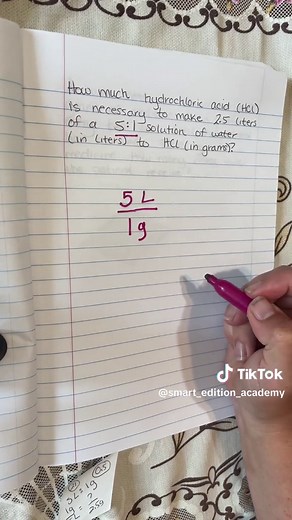 How much hydrochloric acid (HCl)
is necessary to make 2.5 liters
of a 5:1 solution of water
(in liters) to HCl (in grams)?
5 L
1g
TikTok
@smart_edition_academy
0.5
1g
1g = ?